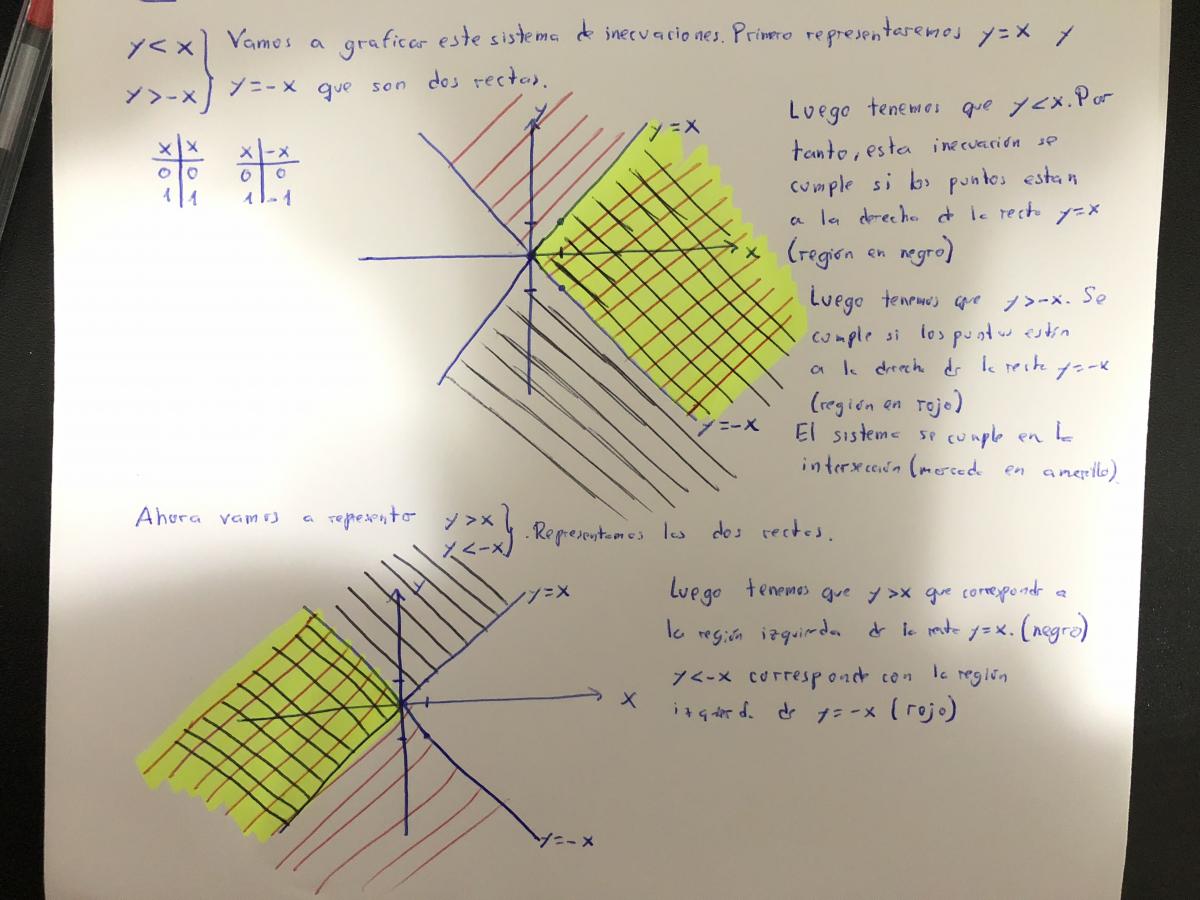 y < x } Vamos a graficar este sistema de inecuaciones. Primero representaremos y = x y
y > -x } y = -x que son dos rectas.
x | x
0 | 0
1 | 1
x | -x
0 | 0
1 | -1
y
y = x
x
y = -x
Luego tenemos que y < x. Por
tanto, esta inecuación se
cumple si los puntos estan
a la derecha de la recta y = x
(región en negro)
Luego tenemos que y > -x. Se
cumple si los puntos estan
a la derecha de la recta y = -x
(región en rojo)
El sistema se cumple en la
intersección (marcado en amarillo).
Ahora vamos a represento y > x }
y < -x } . Representamos las dos rectas.
y
y = x
x
y = -x
Luego tenemos que y > x que corresponde a
la región izquierda de la recta y = x. (negro)
y < -x corresponde con la región
izquierda de y = -x (rojo)